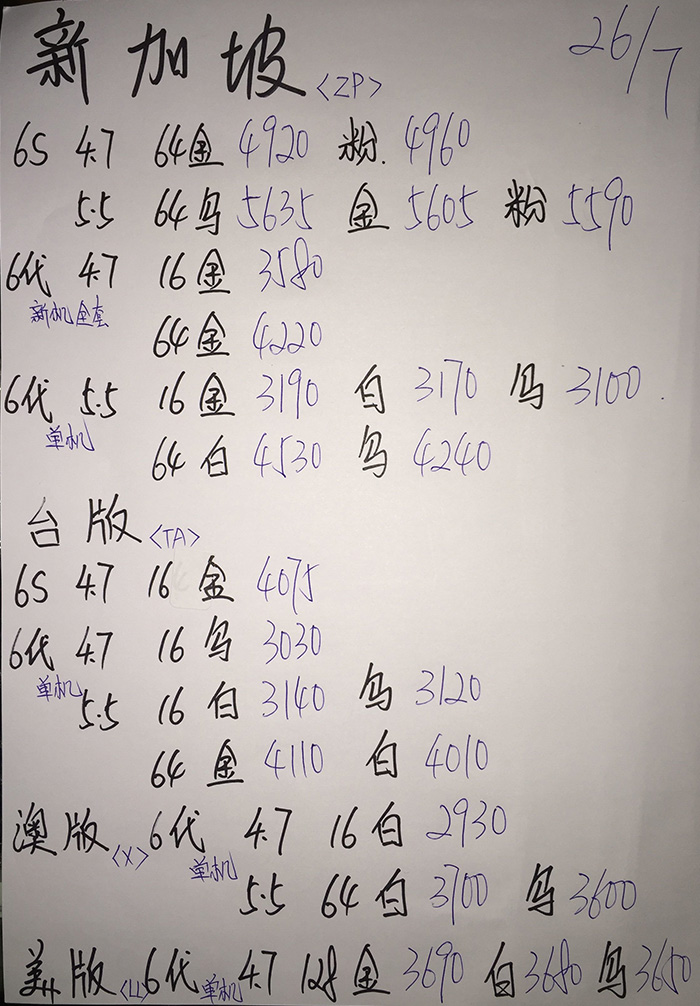 新加坡<ZP> 26/7
6S 4.7 64金 4920 粉. 4960
5.5 64乌 5635 金 5605 粉 5590
6代 4.7 16金 3580
新机全套
64金 4220
6代 5.5 16金 3190 白 3170 乌 3100.
单机
64白 4530 乌 4240
台版<TA>
6S 4.7 16金 4075
6代 4.7 16乌 3030
单机
5.5 16白 3140 乌 3120
64金 4110 白 4010
澳版<X> 6代 4.7 16白 2930
单机
5.5 64白 3700 乌 3600
美版<LL>6代单机 4.7 128金 3690 白3680 乌3650